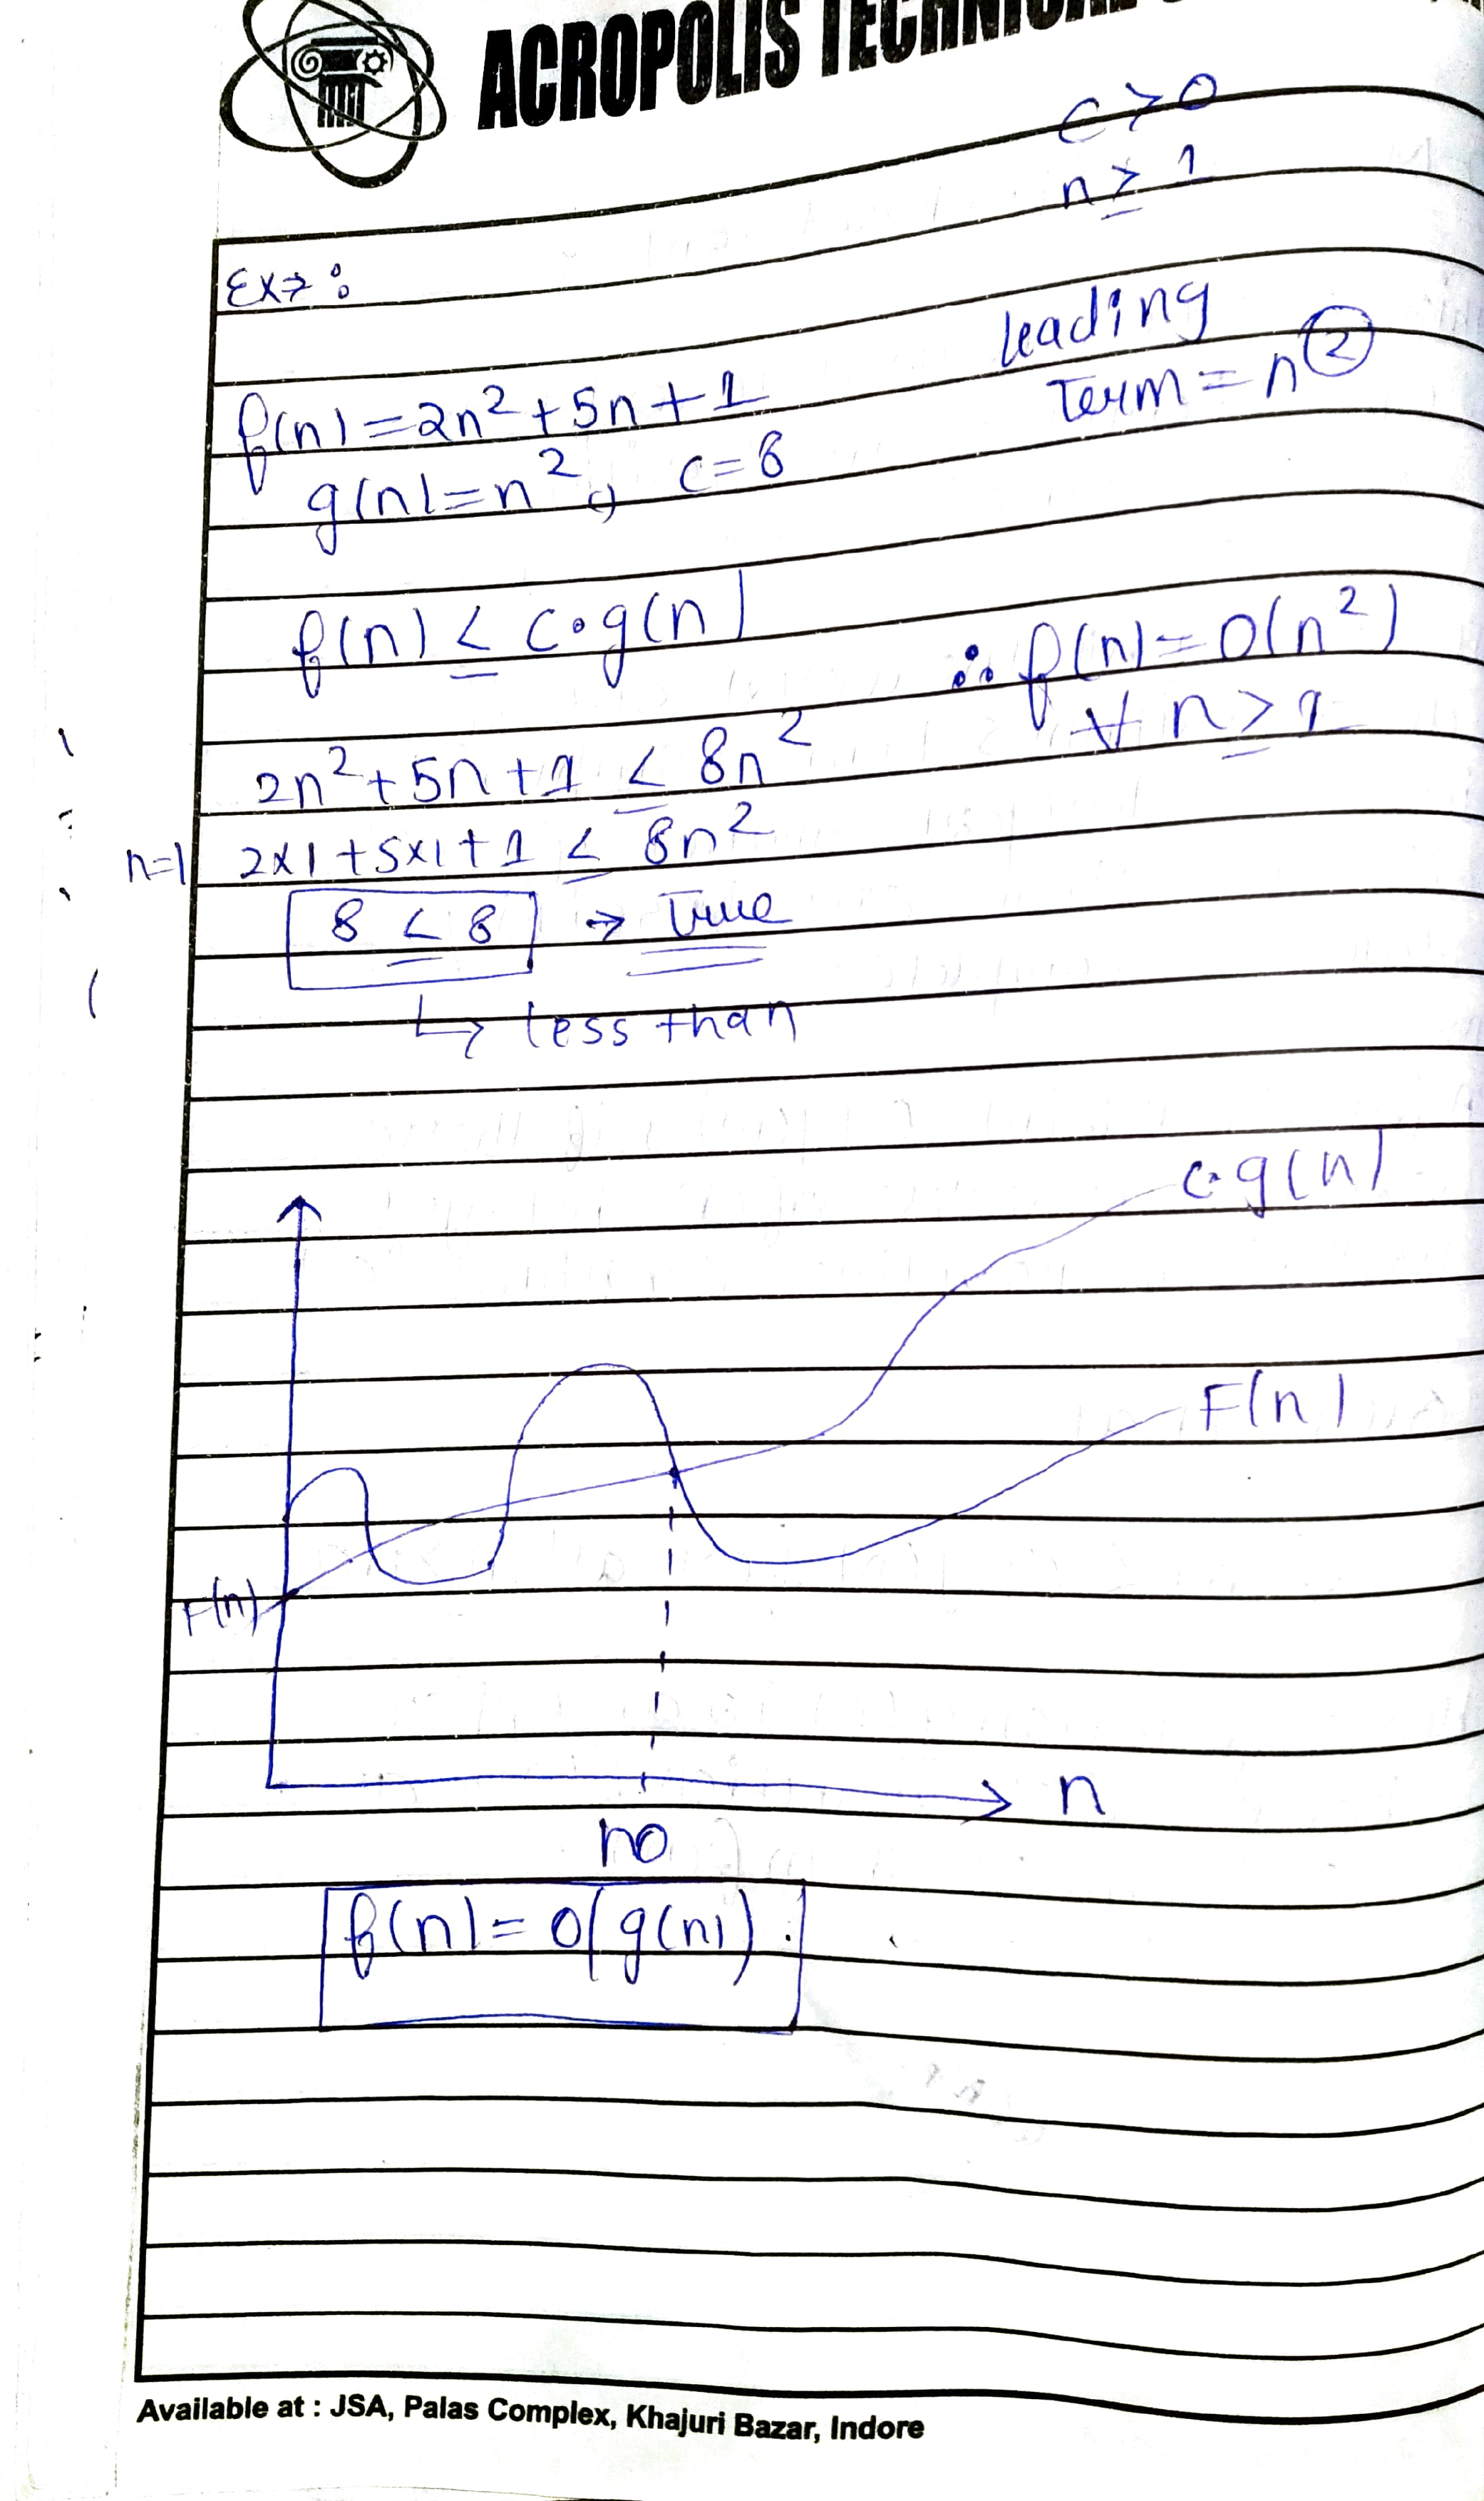 ACROPOLIS TECHNICAL
c > 0
n ≥ 1
Ex→:
leading
Term = n²
f(n) = 2n² + 5n + 1
g(n) = n², c = 8
f(n) ≤ c.g(n)
∴ f(n) = O(n²)
∀ n ≥ 1
2n² + 5n + 1 ≤ 8n²
n=1 2×1 + 5×1 + 1 ≤ 8n²
8 ≤ 8 → True
↳ less than
c.g(n)
F(n)
F(n)
n
no
f(n) = O(g(n)).
Available at : JSA, Palas Complex, Khajuri Bazar, Indore